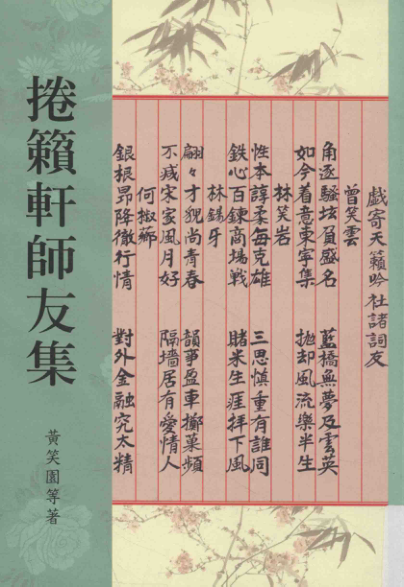 捲籟軒師友集
黃笑園等著
戲寄天籟吟社諸詞友
曾笑雲
角逐騷坛負盛名 藍橋無夢及雲英
如今着意東寧集 拋却風流樂半生
林笑岩
性本諄柔每克雄 三思慎重有誰同
鉄心百鍊商場戰 賭米生涯拝下風
林錫牙
翩々才貌尚青春 韻事盈車擲菓頻
不减宋家風月好 隔墻居有愛情人
何
銀根昂降徹行情 對外金融究太精